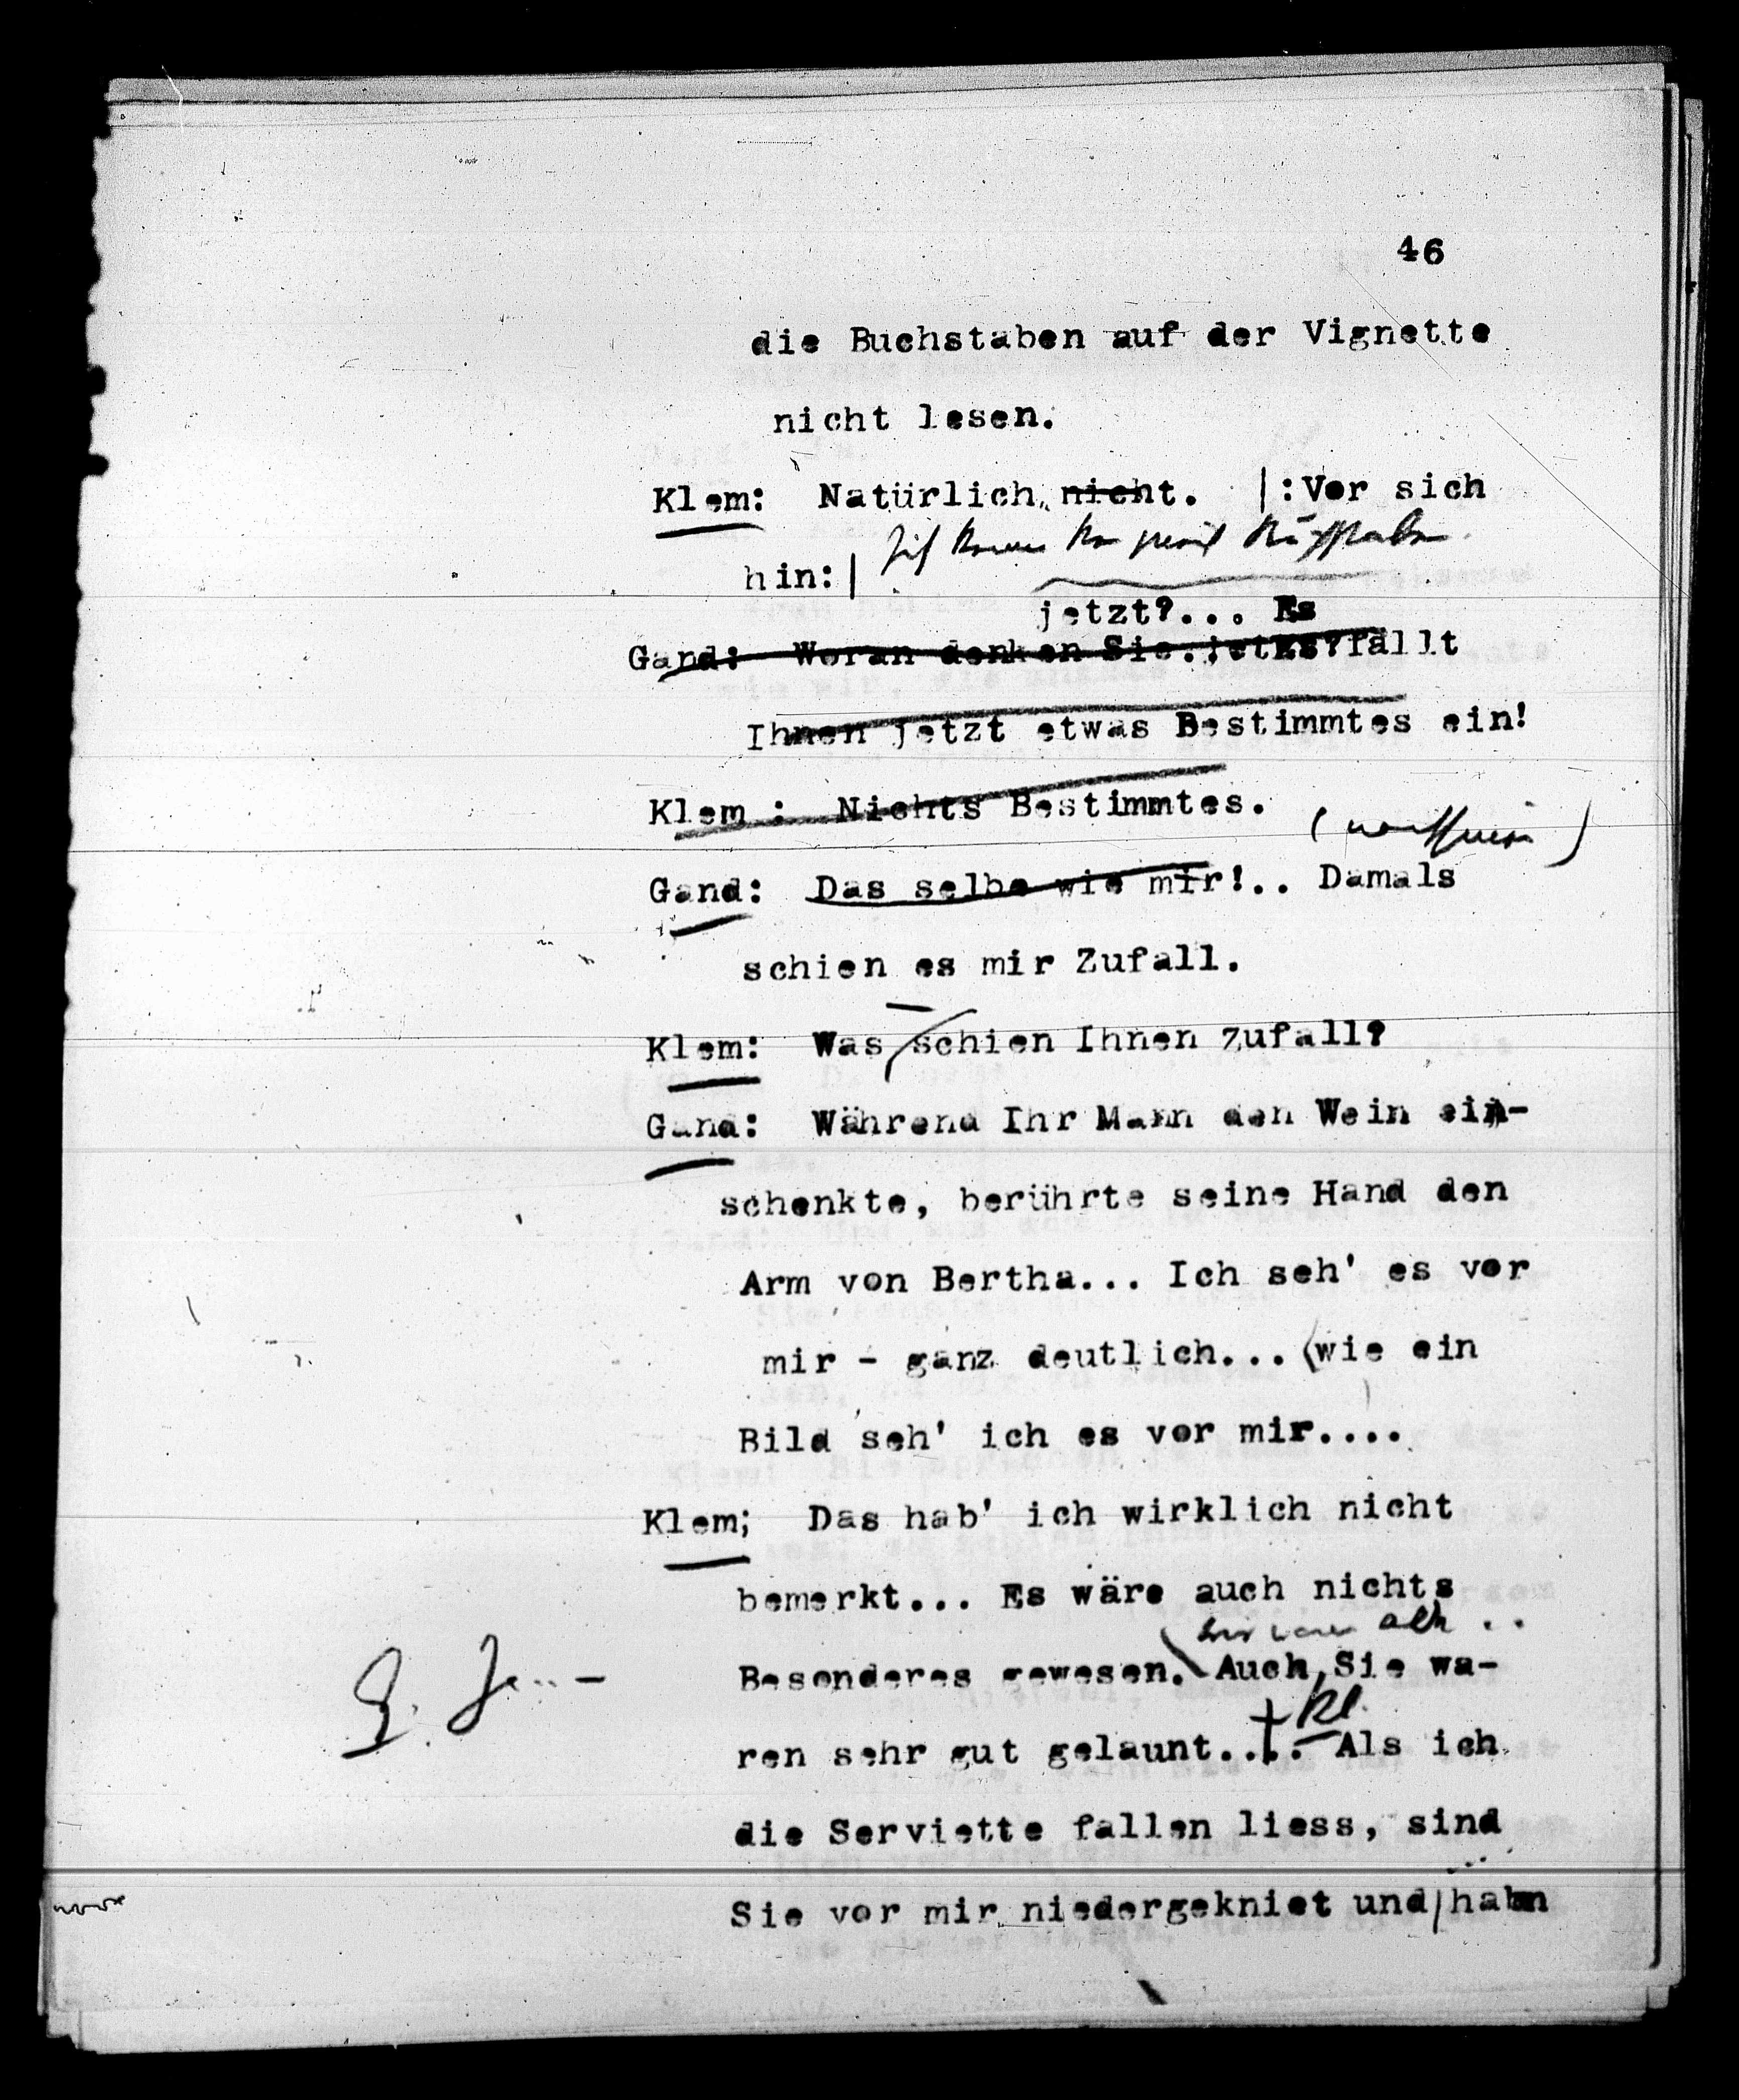 46
die Buchstaben auf der Vignette
nicht lesen.
Klem: Natürlich nicht. |:Vor sich
hin:|
jetzt?... Es
Gand: Woran denken Sie jetzt? fällt
Ihnen jetzt etwas Bestimmtes ein!
Klem : Nichts Bestimmtes.
Gand: Das selbe wie mir!.. Damals
schien es mir Zufall.
Klem: Was schien Ihnen Zufall?
Gand: Während Ihr Mann den Wein ein-
schenkte, berührte seine Hand den
Arm von Bertha... Ich seh' es vor
mir - ganz deutlich... (wie ein
Bild seh' ich es vor mir....
Klem; Das hab' ich wirklich nicht
bemerkt... Es wäre auch nichts
Besonderes gewesen. Auch, Sie wa-
Kl.
ren sehr gut gelaunt.... Als ich
die Serviette fallen liess, sind
Sie vor mir niedergekniet und habn